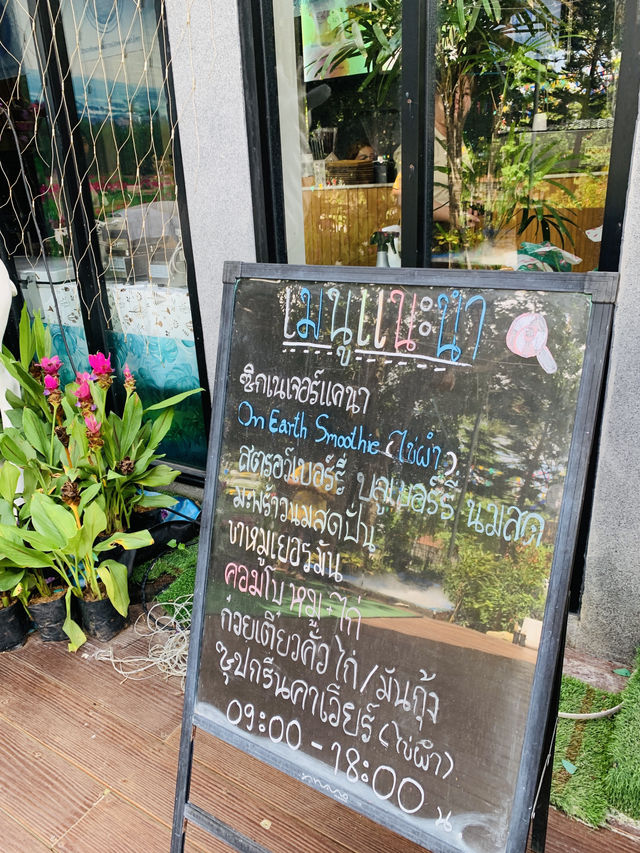 เมนูแนะนำ
ซิกเนเจอร์แคนา
On Earth Smoothie (ไข่ผำ)
สตรอว์เบอร์รี่ บลูเบอร์รี่ นมสด
มะพร้าวนมสดปั่น
ขาหมูเยอรมัน
คอมโบ หมู+ไก่
ก๋วยเตี๋ยวคั่วไก่/มันกุ้ง
ซุปกรีนคาเวียร์ (ไข่ผำ)
09:00 - 18:00 น